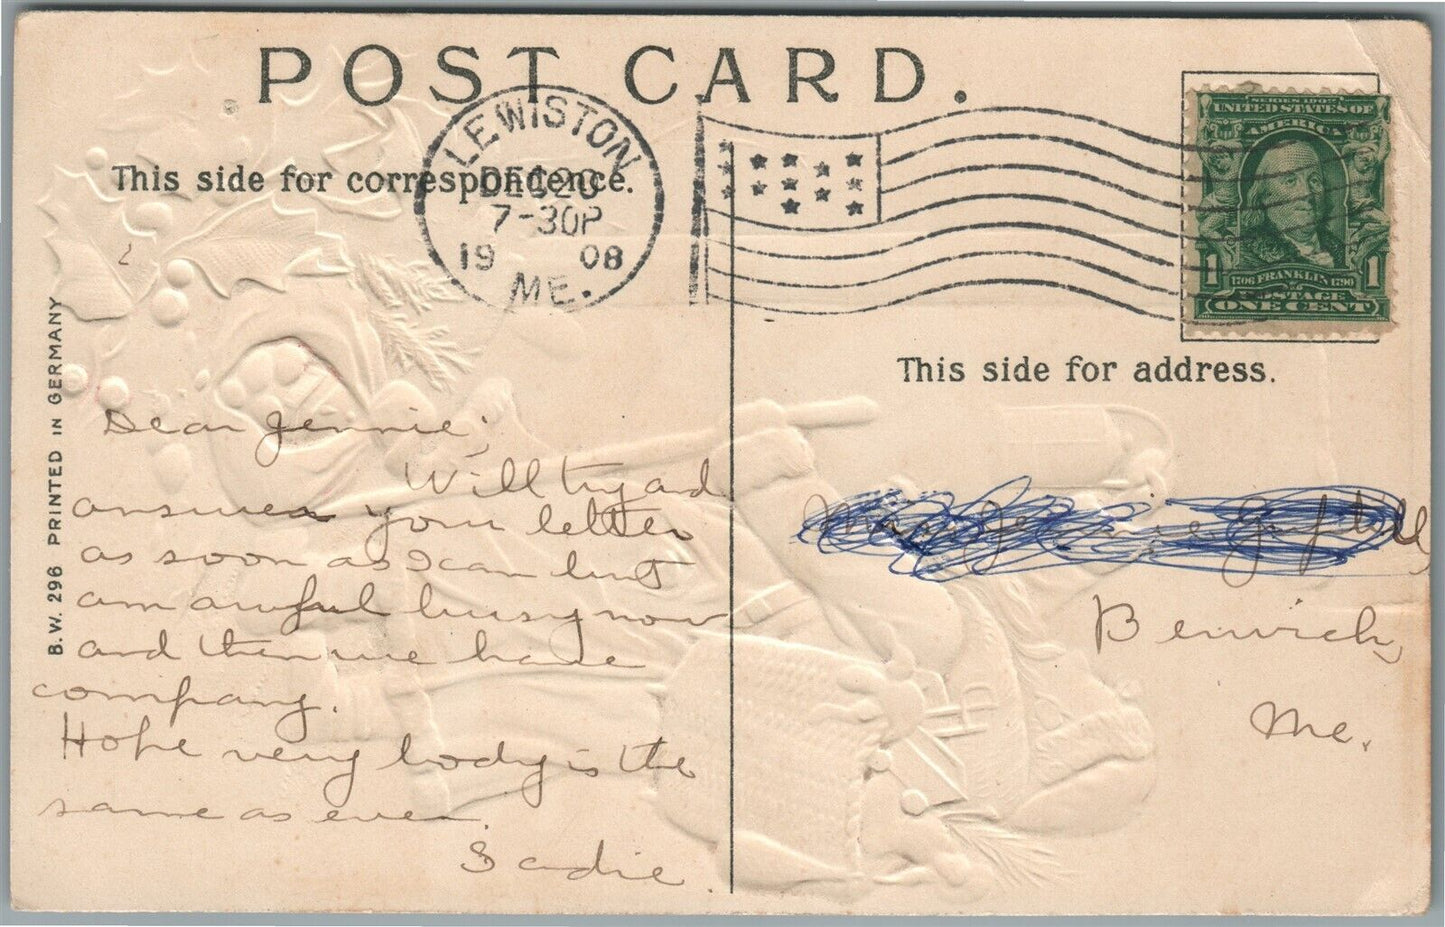 POST CARD.
LEWISTON
DEC 20
7-30P
19 08
ME.
SERIES 1902
UNITED STATES OF
AMERICA
1 1706 FRANKLIN 1790 1
POSTAGE
ONE CENT
This side for correspondence.
This side for address.
B.W. 296 PRINTED IN GERMANY
Dear Jennie;
Will try and
answer your letter
as soon as I can but
am awful busy now
and then we have
company.
Hope very body is the
same as ever.
Sadie.
Miss Jennie
Berwick,
Me.